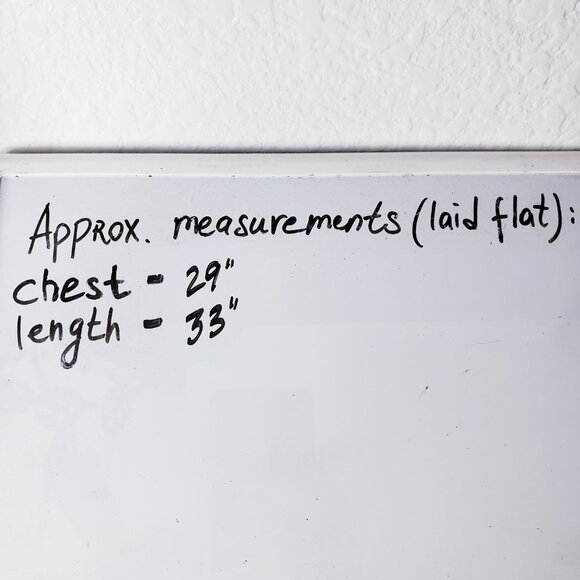 Approx. measurements (laid flat):
chest - 29"
length - 33"